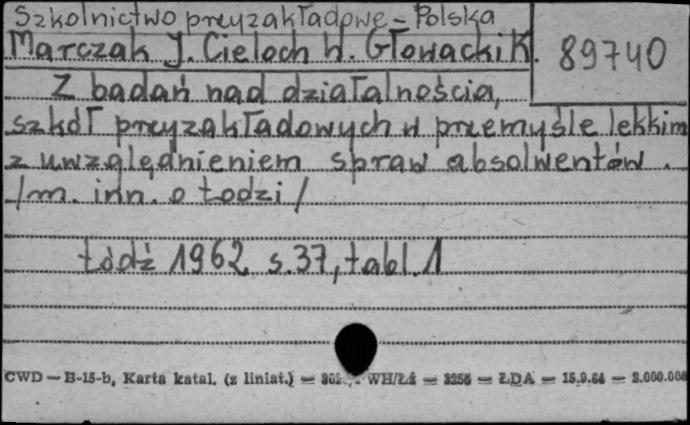 Szkolnictwo przyzakładowe - Polska
Marczak J. Cieloch W. Głowacki K.
89740
Z badań nad działalnością,
szkół przyzakładowych w przemyśle lekkim
z uwzględnieniem spraw absolwentów.
/m. inn. o Łodzi/
Łódź 1962 s.37, tabl. 1
CWD — B-15-b, Karta katal. (z liniat.) — WH/Łź — 3256 — ŁDA — 15.9.64 — 3.000.000